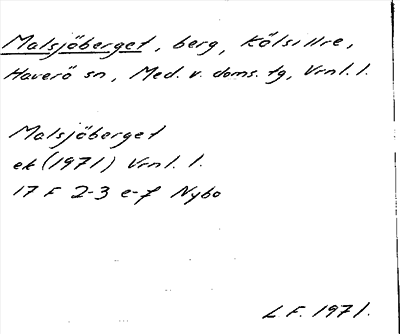 Malsjöberget, berg, Kölsillre,
Haverö sn, Med. v. doms. tg, Vrnl. l.
Malsjöberget
ek (1971) Vrnl. l.
17 F 2-3 e-f Nybo
L F. 1971.